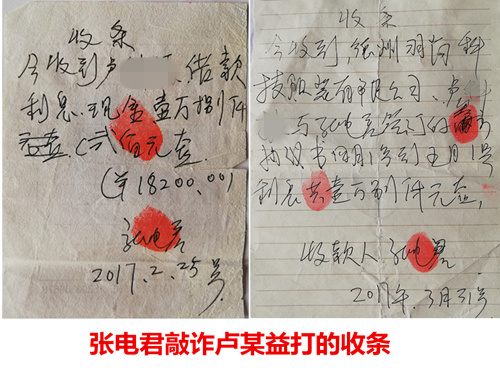 收条
今收到卢 借款
利息.现金壹万捌仟
贰佰元整.
(¥18200.00)
张电君
2017.2.25号
收条
今收到,德州羽 科
技服装有限公司、卢
与张电君签订的
协议书4月1号到五月1号
利息共壹万捌仟元整,
收款人 张电君
2017年.3月31号
张电君敲诈卢某益打的收条